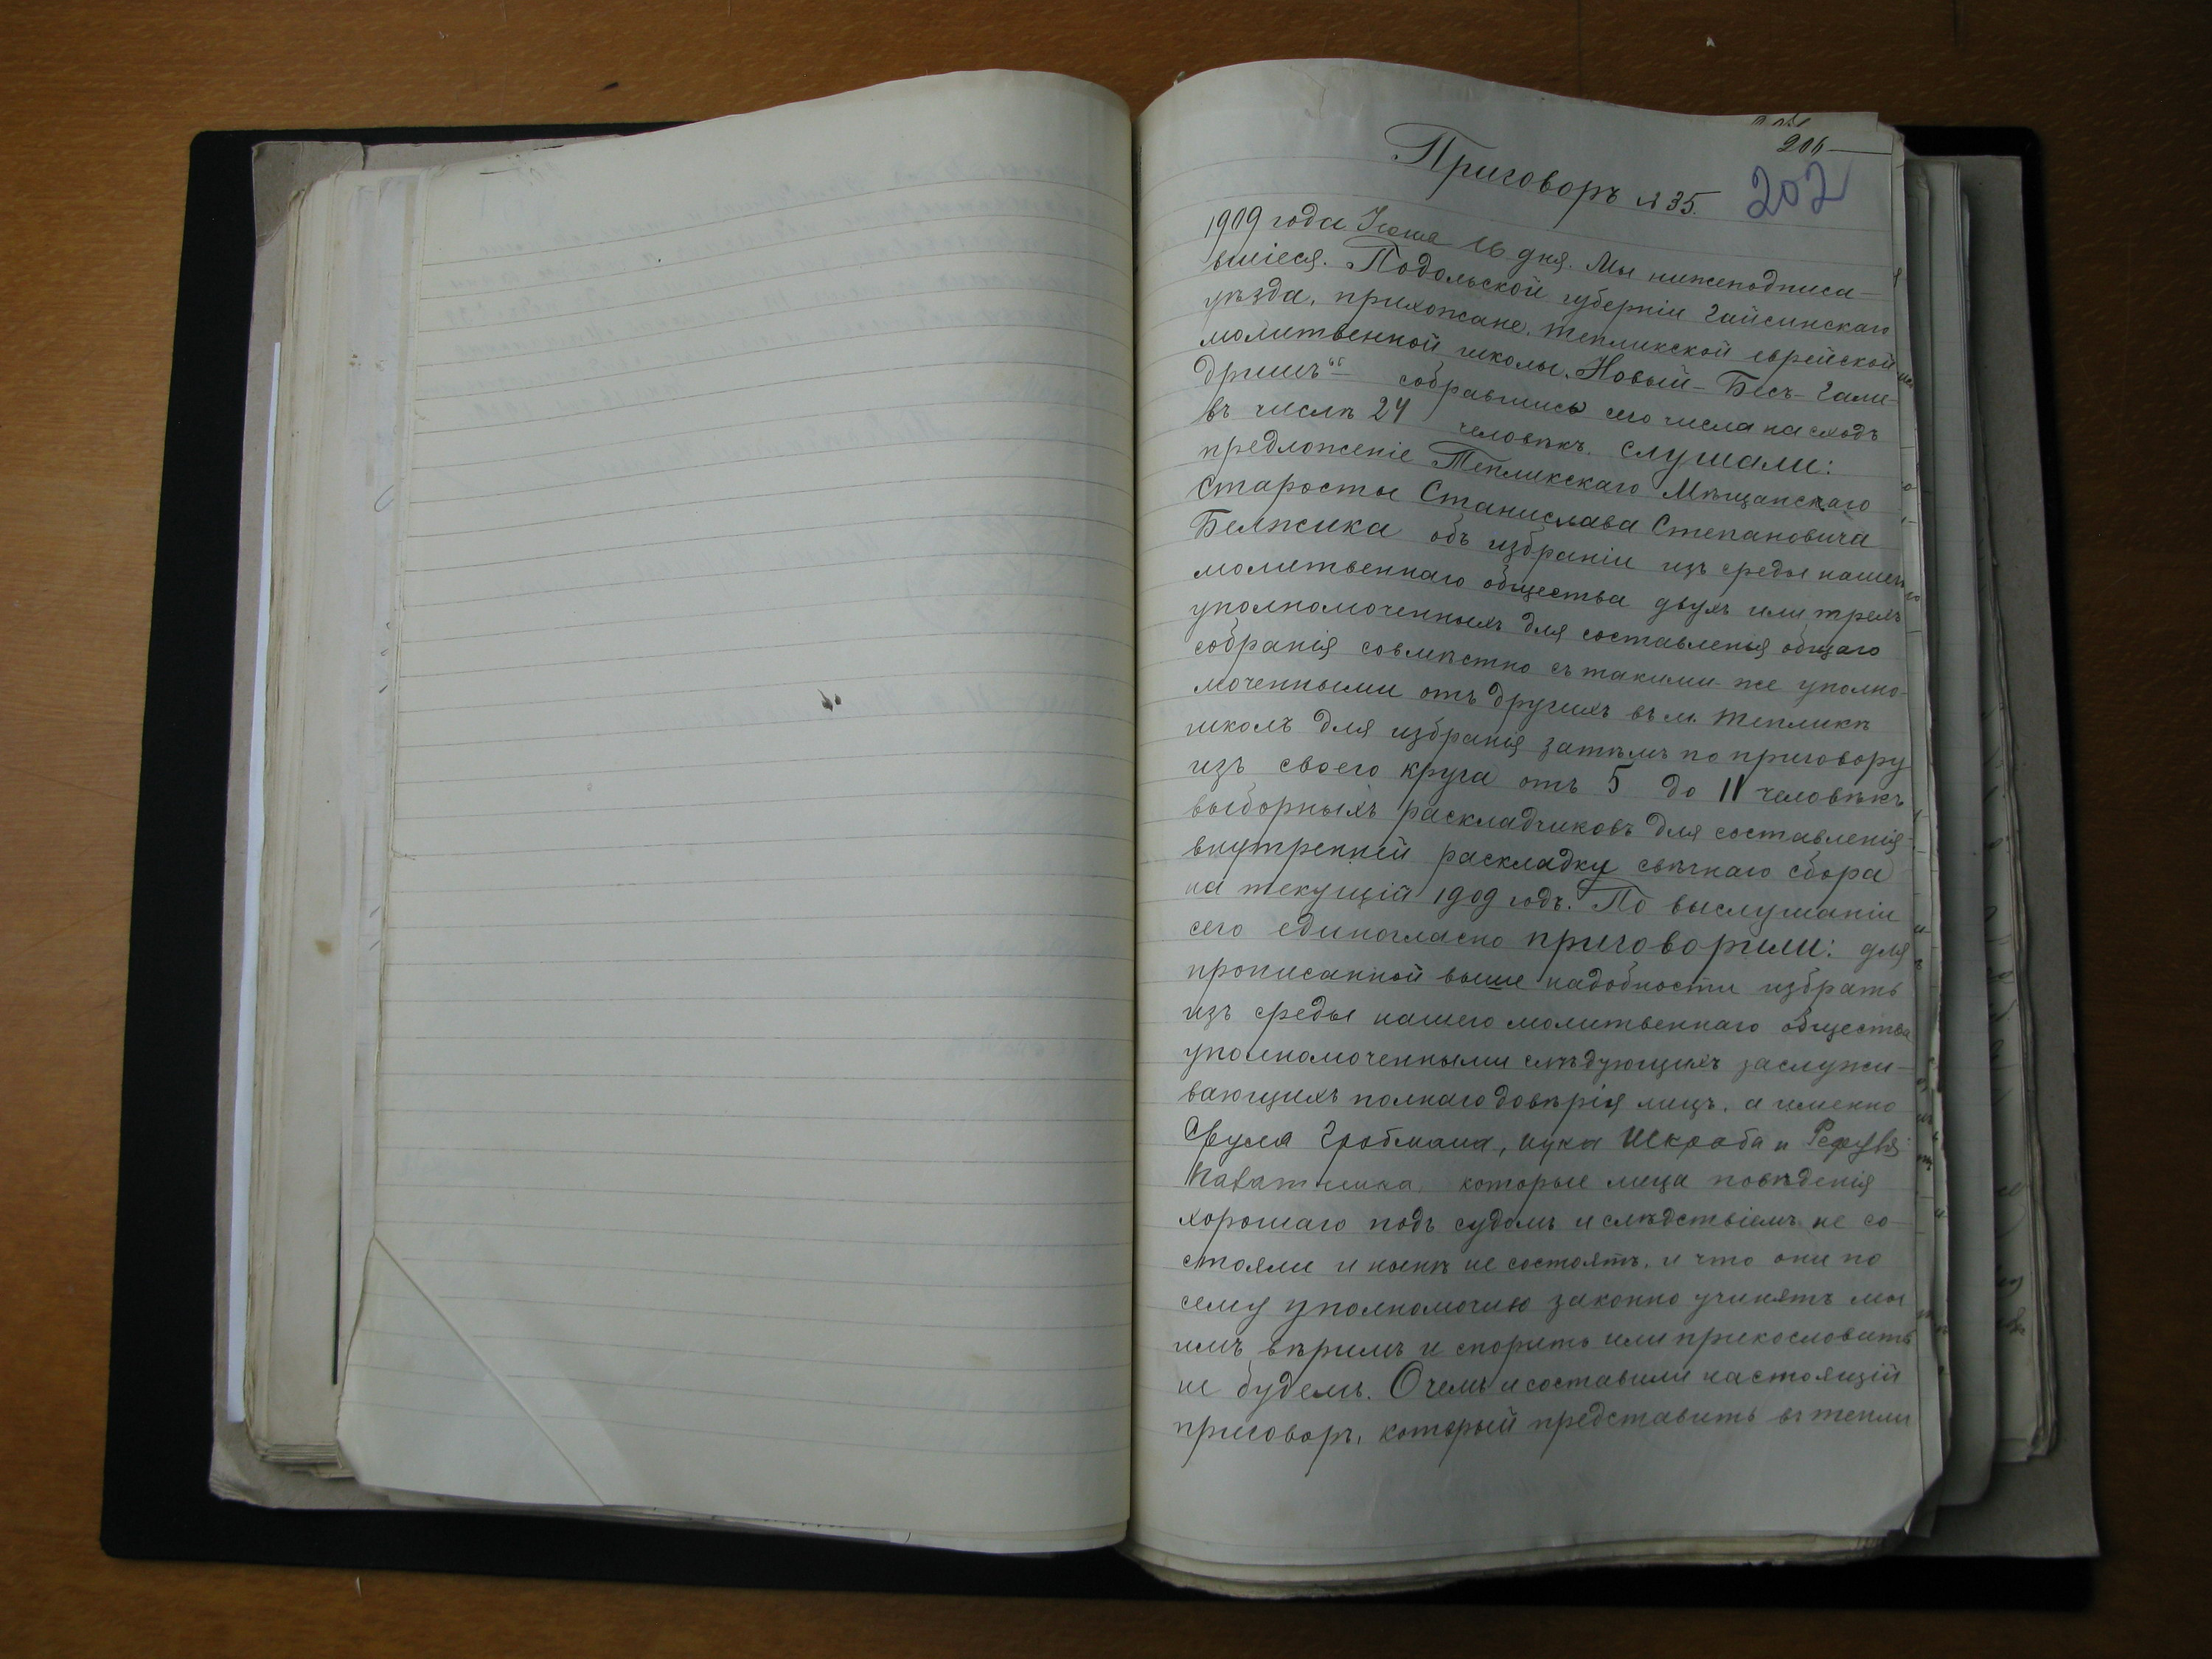 206
202
Приговоръ № 35.
1909 года Іюня 16 дня. Мы нижеподписа-
вшіеся. Подольской губерніи Гайсинскаго
уѣзда, прихожане, Тепликской еврейской
молитвенной школы „Новый-Бесъ-Гами-
дришъ“ собравшись сего числа на сходъ
въ числѣ 24 человѣкъ. Слушали:
предложеніе Тепликскаго Мѣщанскаго
Старосты Станислава Степановича
Белжика объ избраніи изъ среды нашего
молитвеннаго общества двухъ или трехъ
уполномоченныхъ для составленія общаго
собранія совмѣстно съ такими-же уполно-
моченными отъ другихъ въ м. Тепликѣ
школъ для избранія затѣмъ по приговору
изъ своего круга отъ 5 до 11 человѣкъ
выборныхъ раскладчиковъ для составленія
внутренней раскладку свѣчнаго сбора
на текущій 1909 годъ. По выслушаніи
сего единогласно приговорили: для
прописанной выше надобности избрать
изъ среды нашего молитвеннаго общества
уполномоченными слѣдующихъ заслужи-
вающихъ полнаго довѣрія лицъ, а именно
Сруля Гробмана, Шкраба и
которые лица повѣденія
хорошаго подъ судомъ и слѣдствіемъ не со-
стояли и нынѣ не состоятъ, и что они по
сему уполномочию законно учинятъ мы
имъ вѣримъ и спорить или прикословить
не будемъ. О чемъ и составили настоящій
приговоръ, который представить въ Тепли